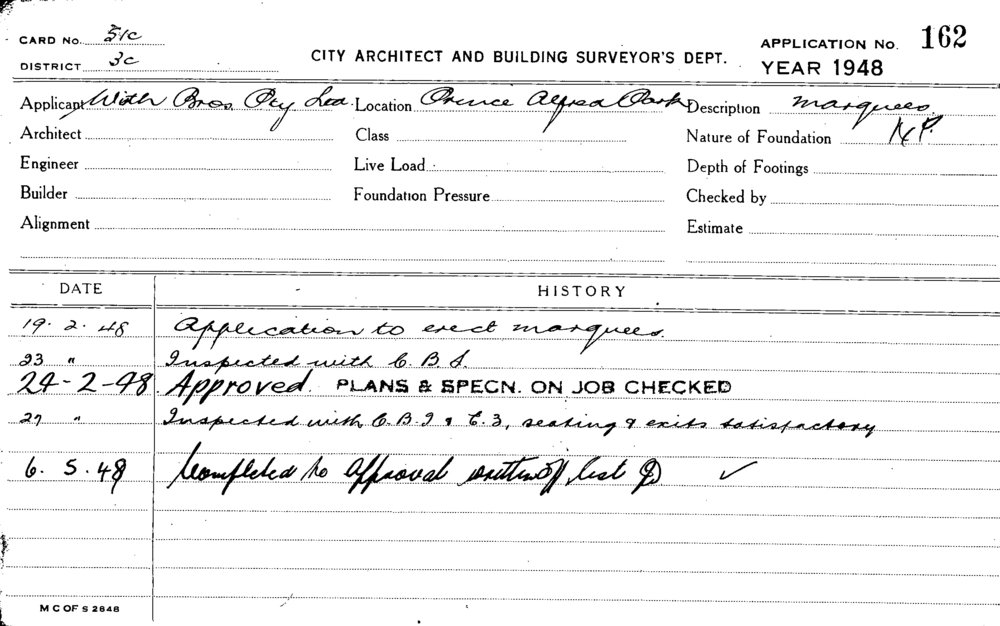 CARD No. 51c
DISTRICT 3c
CITY ARCHITECT AND BUILDING SURVEYOR'S DEPT.
APPLICATION No. 162
YEAR 1948
Applicant Wirth Bros Pty Ltd. Location Prince Alfred Park Description marquees.
Architect Class Nature of Foundation
Engineer Live Load Depth of Footings
Builder Foundation Pressure Checked by
Alignment Estimate
DATE HISTORY
19. 2. 48 Application to erect marquees.
23 " Inspected with C.B.S.
24-2-48 Approved. PLANS & SPECN. ON JOB CHECKED
27 " Inspected with C.B.I & , seating & exits satisfactory
6. 5. 48 Completed to approval written off list ✓
M C OF S 2848